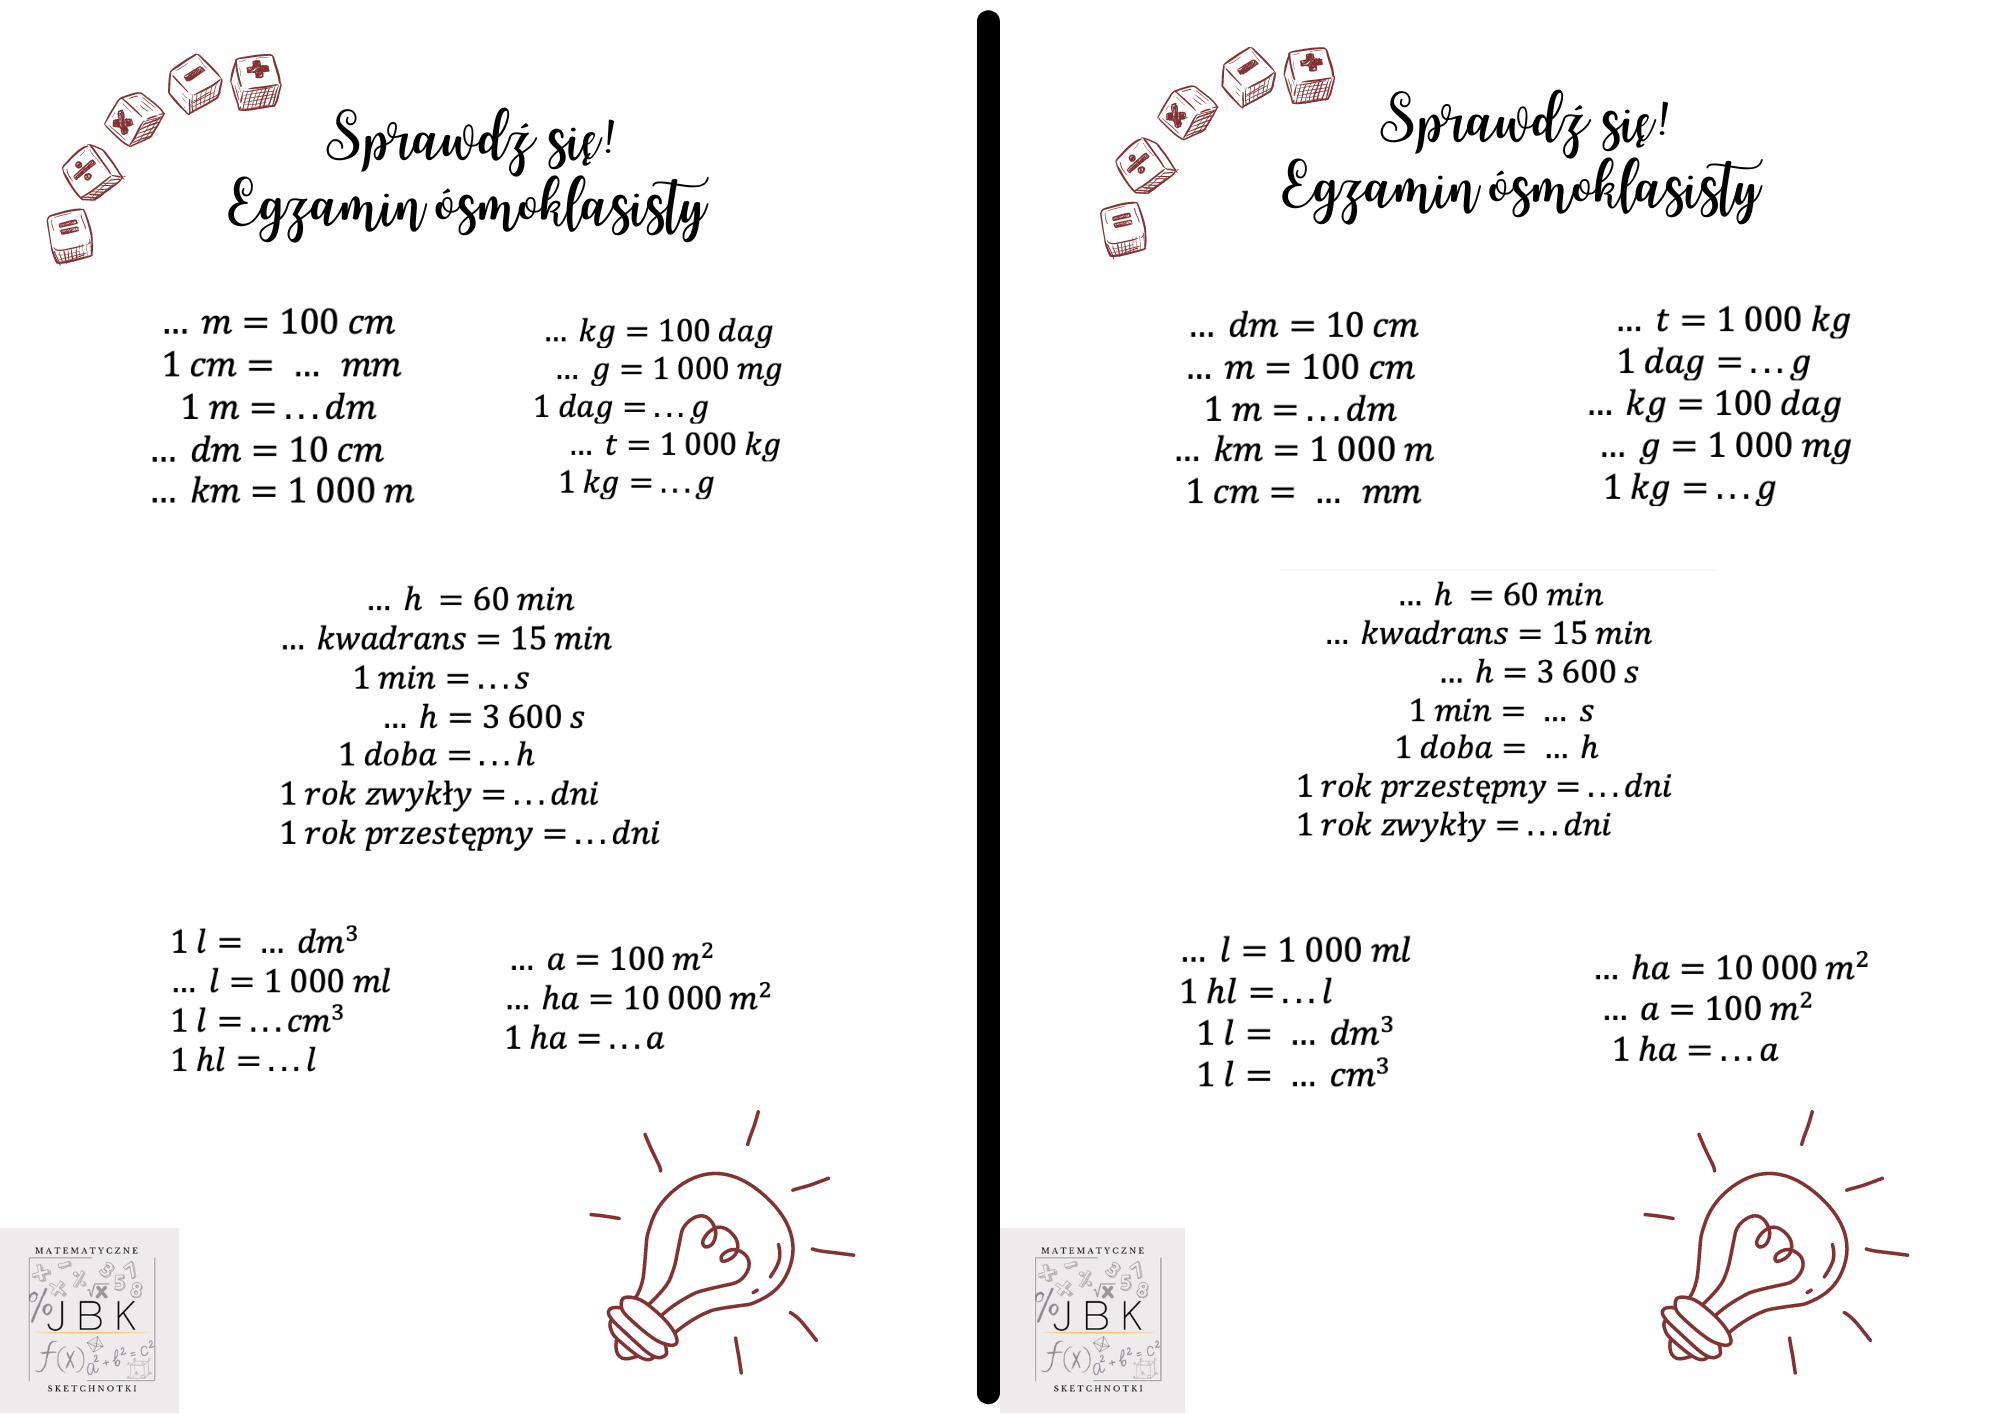 Sprawdź się!
Egzamin ósmoklasisty
... m = 100 cm
1 cm = ... mm
1 m = ...dm
... dm = 10 cm
... km = 1 000 m
... kg = 100 dag
... g = 1 000 mg
1 dag = ...g
... t = 1 000 kg
1 kg = ...g
... h = 60 min
... kwadrans = 15 min
1 min = ...s
... h = 3 600 s
1 doba = ...h
1 rok zwykły = ...dni
1 rok przestępny = ...dni
1 l = ... dm³
... l = 1 000 ml
1 l = ...cm³
1 hl = ...l
... a = 100 m²
... ha = 10 000 m²
1 ha = ...a
MATEMATYCZNE
JBK
f(x) a² + b² = c²
SKETCHNOTKI
Sprawdź się!
Egzamin ósmoklasisty
... dm = 10 cm
... m = 100 cm
1 m = ...dm
... km = 1 000 m
1 cm = ... mm
... t = 1 000 kg
1 dag = ...g
... kg = 100 dag
... g = 1 000 mg
1 kg = ...g
... h = 60 min
... kwadrans = 15 min
... h = 3 600 s
1 min = ... s
1 doba = ... h
1 rok przestępny = ...dni
1 rok zwykły = ...dni
... l = 1 000 ml
1 hl = ...l
1 l = ... dm³
1 l = ... cm³
... ha = 10 000 m²
... a = 100 m²
1 ha = ...a
MATEMATYCZNE
JBK
f(x) a² + b² = c²
SKETCHNOTKI